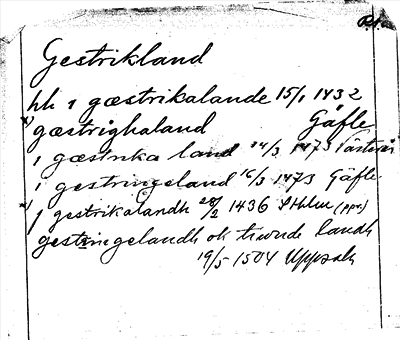 Gestrikland
hh i gæstrikalande 15/1 1432
x) gæstrighaland Gäfle
i gæstrika land 14/3 1473 Västerås
i gestringeland 16/3 1473 Gäfle
x) j gestrikalandh 28/2 1436 Sthlm (ppr.)
gestringelandh ok tiwnde landh
19/5 1504 Uppsala